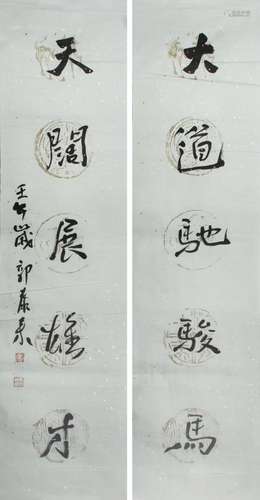 大道馳駿馬
天闊展雄才
壬午歲 郭養東